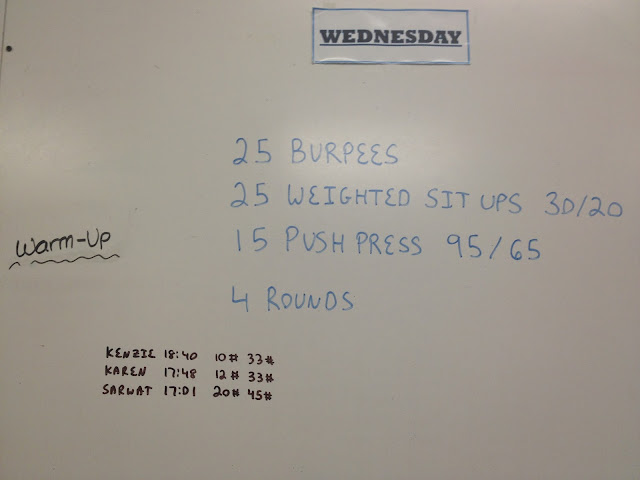 WEDNESDAY
25 BURPEES
25 WEIGHTED SIT UPS 30/20
Warm-Up
15 PUSH PRESS 95/65
4 ROUNDS
KENZIE 18:40 10# 33#
KAREN 17:48 12# 33#
SARWAT 17:01 20# 45#